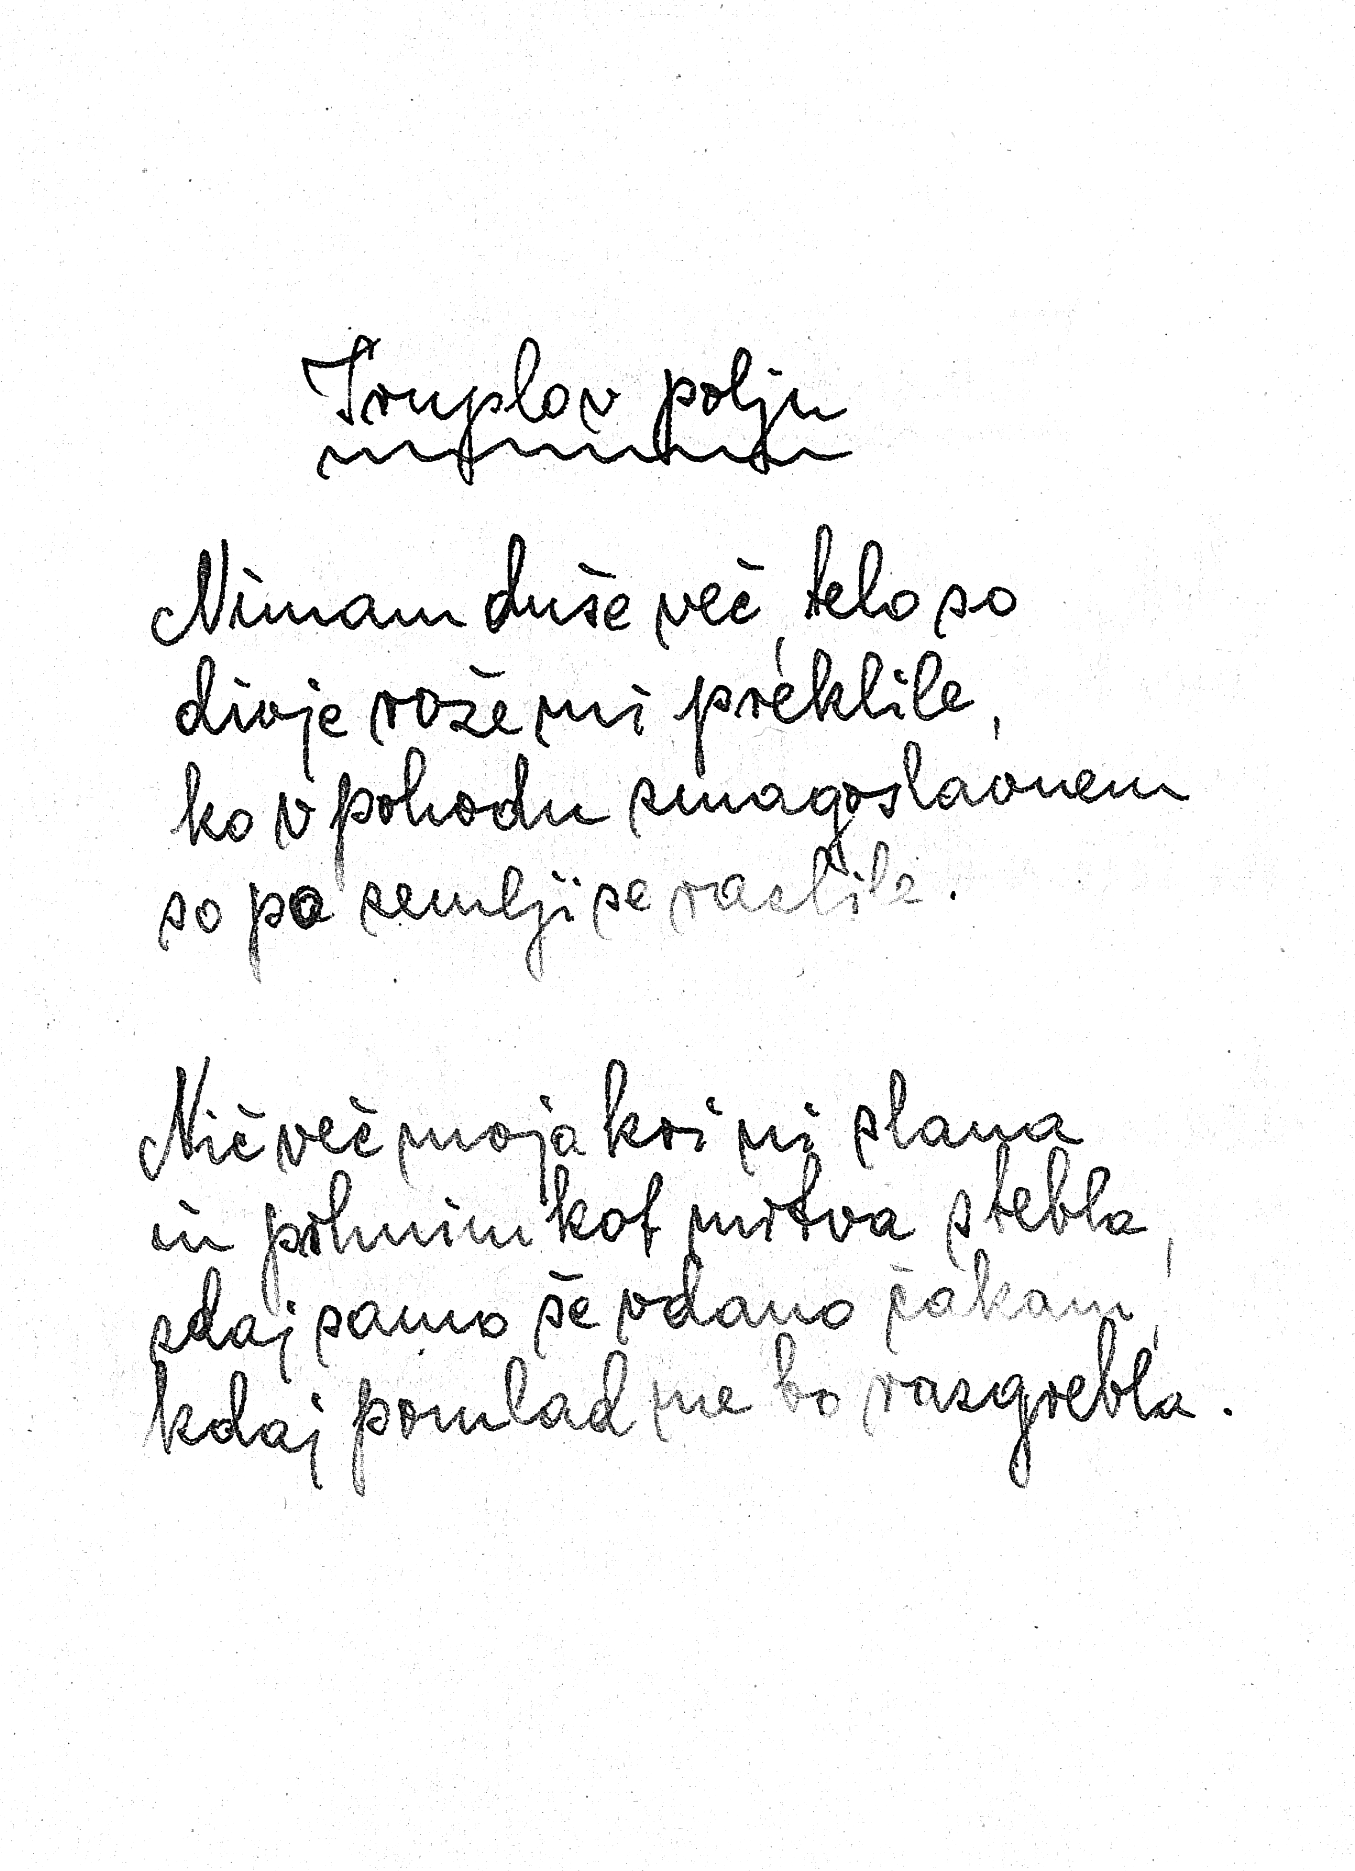 Truplo v polju
Nimam duše več, telo so
divje rože mi preklile,
ko v pohodu zmagoslavnem
so po zemlji se razlile.
Nič več moja kri ni slana
in prhnim kot mrtva stebla,
zdaj samo še vdano čakam,
kdaj pomlad me bo razgrebla.